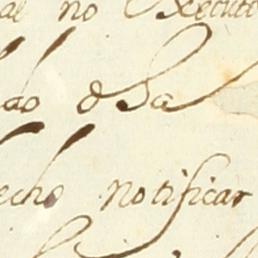 al no Execut
ao o Sa
echo notificar